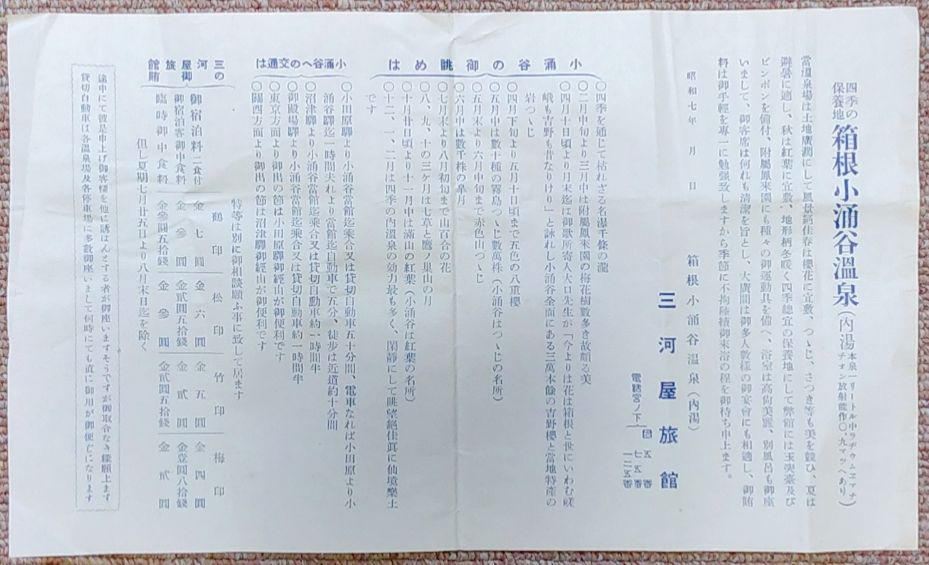 四季の保養地 箱根小涌谷溫泉(內湯)
當溫泉場は土地廣濶にして風景絕佳春は櫻花に宜敷、つゝじ、さつき等も美を競ひ、夏は
避暑に適し、秋は紅葉に宜敷、地形柄冬暖く四季總宜の保養地にして弊館には玉突臺及び
ピンポンを備付、附屬鳳來園にも種々の御運動具を備へ、浴室は高尙美麗、別風呂も御座
いまして、御客席は何れも淸潔を旨とし、大廣間は御多人數樣の御宴會にも相適し、御賄
料は御手輕を專一に勉强致しますから季節に不拘陸續御來浴の程を御待ち申上ます。
昭和七年 月 日
箱根小涌谷溫泉(內湯)
三河屋旅館
電話宮ノ下
小涌谷の御眺めは
○四季を通じて枯れざる名瀑千條の瀧
○二月中旬より三月中は附屬鳳來園の梅花樹數多き故頗る美
○四月十日頃より月末迄は御歌所寄人大口先生が「今よりは花は箱根と世にいわむ嵯
峨も吉野も昔なりけり」と詠れし小涌谷全面にある三萬本餘の吉野櫻と當地特産の
岩つゝじ
○四月下旬より五月十日頃まで五色の八重櫻
○五月中は數十種の霧島つゝじ數萬株(小涌谷はつゝじの名所)
○五月末より六月中旬まで赤色山つゝじ
○六月中は數千株の皐月
○七月末より八月初旬まで山百合の花
○八、九、十の三ケ月は七草と鷹ノ巢山の月
○十月廿日頃より十一月中は滿山の紅葉(小涌谷は紅葉の名所)
○十二、一、二月は四季の內溫泉の効力最も多く、閑靜にして眺望絕佳眞に仙境樂土
です
小涌谷への交通は
○小田原驛より小涌谷當館迄乘合又は貸切自動車五十分間、電車なれば小田原より小
涌谷驛迄一時間夫れより當館迄自動車で五分、徒步は近道約十分間
○沼津驛より小涌谷當館迄乘合又は貸切自動車約一時間半
○御殿場驛より小涌谷當館迄乘合又は貸切自動車約一時間半
○東京方面より御出の節は小田原驛御經由が御便利です
○關西方面より御出の節は沼津驛御經由が便利です
三河屋旅館の御賄
特等は別に御相談願ふ事に致して居ます
鶴印 松印 竹印 梅印
御宿泊料二食付 金七圓 金六圓 金五圓 金四圓
御宿泊客御中食料 金參圓 金貳圓五拾錢 金貳圓 金壹圓八拾錢
臨時御中食料 金參圓五拾錢 金參圓 金貳圓五拾錢 金貳圓
但し夏期七月廿五日より八月末日迄を除く
途中にて彼是申上げ御客樣を他に誘はんとする者が御座いますそうですが御取合なき樣願上ます
貸切自動車は各溫泉場及各停車場に多數御座いまして何時にても直に御用が御便じになります